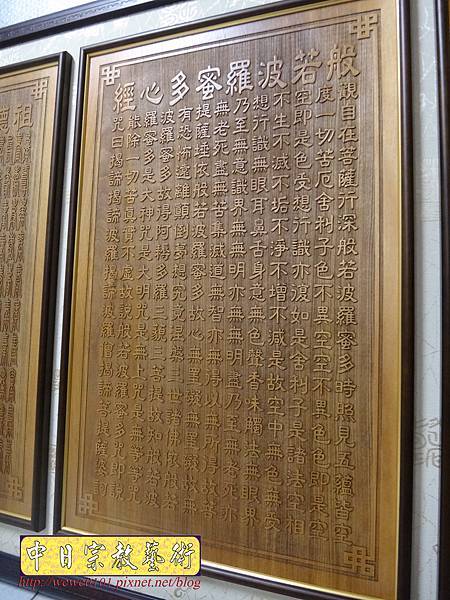 般若波羅蜜多心經
觀自在菩薩行深般若波羅蜜多時照見五蘊皆空
度一切苦厄舍利子色不異空空不異色色即是空
空即是色受想行識亦復如是舍利子是諸法空相
不生不滅不垢不淨不增不減是故空中無色無受
想行識無眼耳鼻舌身意無色聲香味觸法無眼界
乃至無意識界無無明亦無無明盡乃至無老死亦
無老死盡無苦集滅道無智亦無得以無所得故菩
提薩埵依般若波羅蜜多故心無罣礙無罣礙故無
有恐怖遠離顛倒夢想究竟涅槃三世諸佛依般若
波羅蜜多故得阿耨多羅三藐三菩提故知般若波
羅蜜多是大神咒是大明咒是無上咒是無等等咒
能除一切苦真實不虛故說般若波羅蜜多咒即說
咒曰揭諦揭諦波羅揭諦波羅僧揭諦菩提薩婆訶
祖德
中日宗教藝術
http://wewe0101.pixnet.net/blog